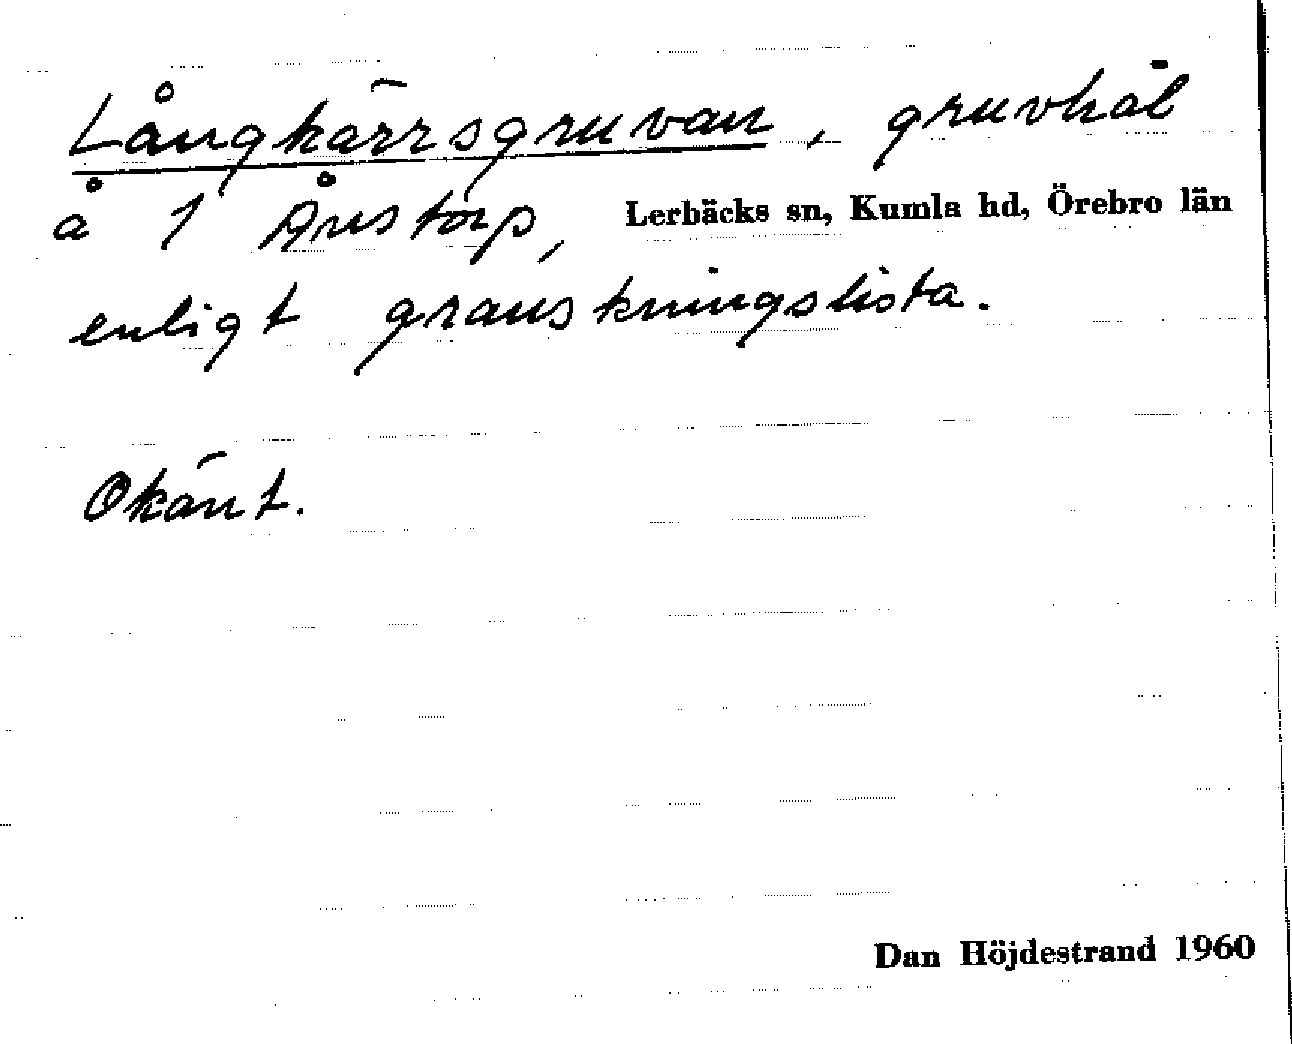 Långkärrsgruvan, gruvhål
å 1 Åstorp, Lerbäcks sn, Kumla hd, Örebro län
enligt granskningslista.
Okänt.
Dan Höjdestrand 1960